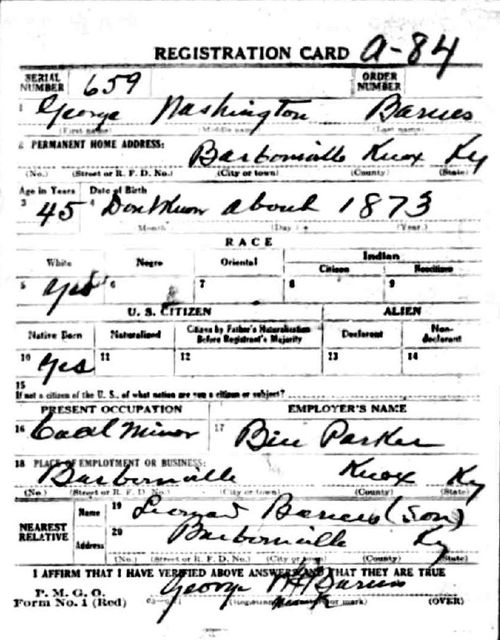 REGISTRATION CARD A-84
SERIAL NUMBER 659 ORDER NUMBER
1 George Washington Barnes
(First name) (Middle name) (Last name)
2 PERMANENT HOME ADDRESS:
Barbourville Knox Ky
(No.) (Street or R. F. D. No.) (City or town) (County) (State)
Age in Years Date of Birth
3 45 4 Dont Know about 1873
Month (Day) (Year.)
RACE
White Negro Oriental Indian
Citizen Noncitizen
5 yes 6 7 8 9
U. S. CITIZEN ALIEN
Native Born Naturalized Citizen by Father's Naturalization Before Registrant's Majority Declarant Non-declarant
10 Yes 11 12 13 14
15
If not a citizen of the U. S., of what nation are you a citizen or subject?
PRESENT OCCUPATION EMPLOYER'S NAME
16 Coal Minor 17 Bill Parker
18 PLACE OF EMPLOYMENT OR BUSINESS:
Barbourville Knox Ky
(No.) (Street or R. F. D. No.) (City or town) (County) (State)
NEAREST RELATIVE Name 19 Leonard Barnes (Son)
Address 20 Barbourville Ky
(No.) (Street or R. F. D. No.) (City or town) (County) (State)
I AFFIRM THAT I HAVE VERIFIED ABOVE ANSWERS AND THAT THEY ARE TRUE
P. M. G. O.
Form No. 1 (Red) George W Barnes
(Registrant's signature or mark) (OVER)